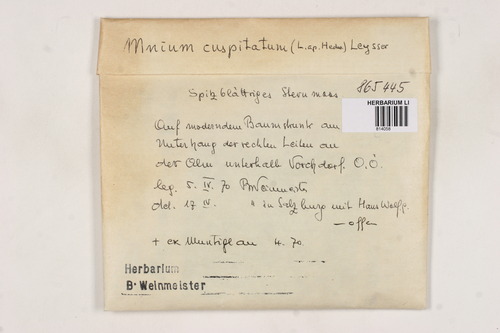 Mnium cuspitatum (L. ap. Hedw) Leysser
865445
Spitzblättriges Sternmoos
HERBARIUM LI
814058
Auf moderndem Baumstrunk am
Unterhang der rechten Leiten an
der Alm unterhalb Vorchdorf. O.Ö.
leg. 5. IV. 70 BWeinmeister
det. 17 IV. " in Salzburg mit Hans
+ ex 4. 70.
Herbarium
B. Weinmeister